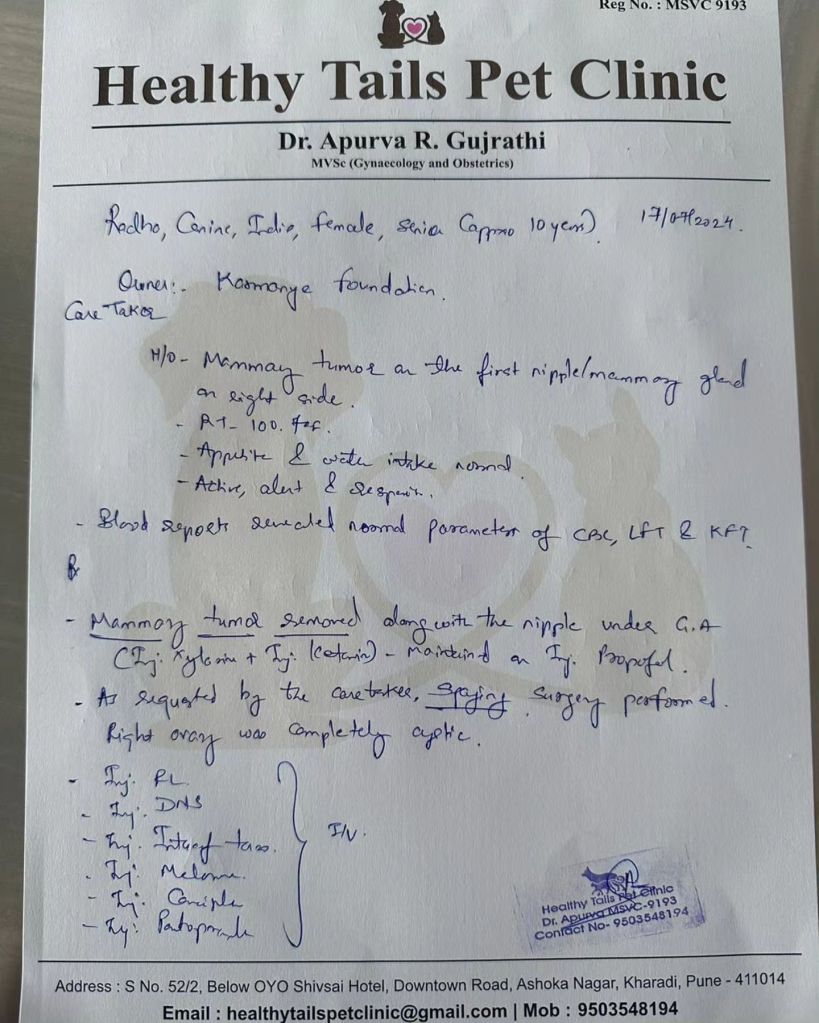 Reg No. : MSVC 9193
Healthy Tails Pet Clinic
Dr. Apurva R. Gujrathi
MVSc (Gynaecology and Obstetrics)
Canine, Indie, female, senior (approx 10 years) 17/07/2024.
Owner:- foundation.
Care Taker
H/O - Mammary tumor on the first nipple/mammary gland
on right side.
- RT- 100.
- Appetite & water intake normal.
- Active, alert &
- Blood reports revealed normal parameters of CBC, LFT & KFT
Rx
- Mammary tumor removed along with the nipple under G.A
(Inj. Xylazine + Inj. Ketamin) - Maintained on Inj. Propofol.
- As requested by the caretaker, spaying surgery performed.
Right ovary was completely cystic.
- Inj. RL
- Inj. DNS
- Inj. Intacef tazo.
- Inj.
- Inj.
- Inj.
I/V.
Healthy Tails Pet Clinic
Dr. Apurva MSVC-9193
Contact No- 9503548194
Address : S No. 52/2, Below OYO Shivsai Hotel, Downtown Road, Ashoka Nagar, Kharadi, Pune - 411014
Email : healthytailspetclinic@gmail.com | Mob : 9503548194